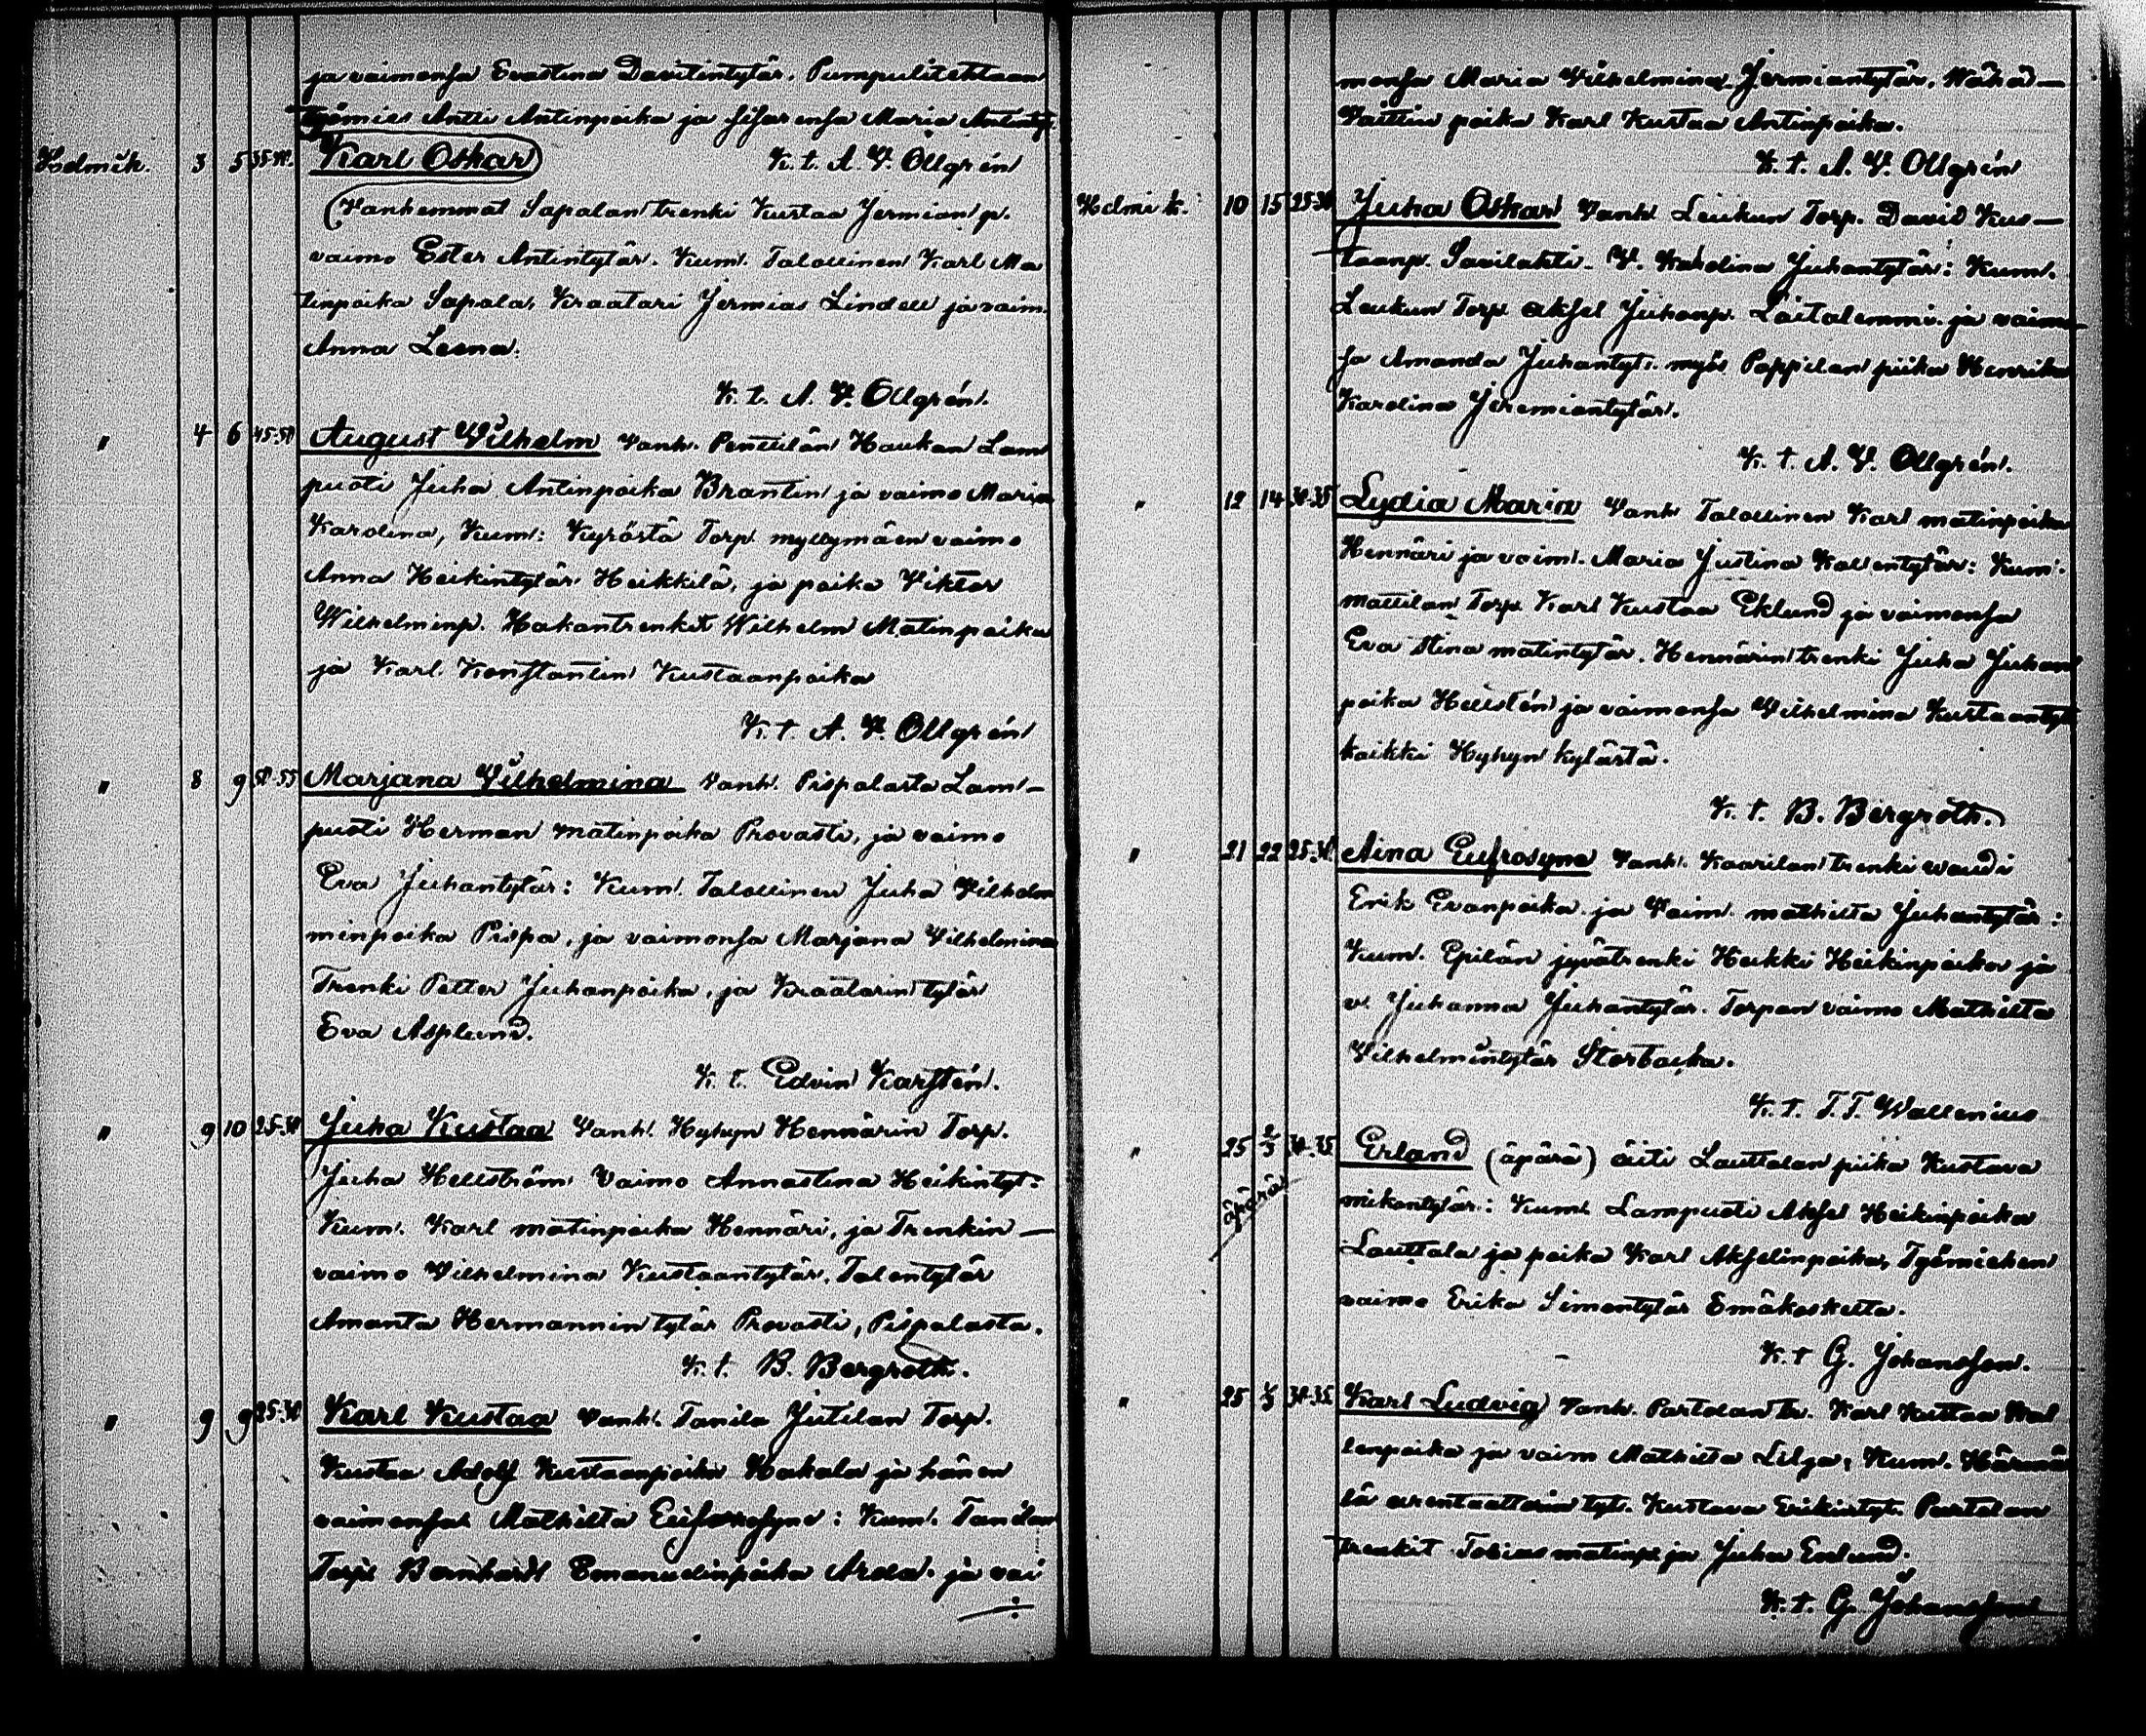 ja vaimonsa Evastina Davitintytär. Pumpulitehtaan
työmies Antti Antinpoika ja sisarensa Maria Antintyt.
Helmik. 3 5 35-40. Karl Oskar K. t. A. V. Ollgrén
(Vanhemmat Sapalan trenki Kustaa Jermian p.
vaimo Ester Antintytär. Kum. Talollinen Karl Ma
tinpoika Sapala, Kraatari Jermias Lindell ja vaim.
Anna Leena.
K. t. A. V. Ollgrén.
" 4 6 45-50 August Vilhelm Vanh. Penttilän Haukan Lam
puoti Juha Antinpoika Brantin ja vaimo Maria
Karolina, Kum: Kyröstä Torp. myllymäen vaimo
Anna Heikintytär Heikkilä, ja poika Viktor
Wilhelminp. Hakantrenkit Wilhelm Matinpoika
ja Karl Konstantin Kustaanpoika
K. t. A. V. Ollgrén
" 8 9 50-55 Marjana Vilhelmina Vanh. Pispalasta Lam-
puoti Herman matinpoika Provasti, ja vaimo
Eva Juhantytär: Kum. Talollinen Juha Vilhelm
minpoika Pispa, ja vaimonsa Marjana Vilhelmina
Trenki Petter Juhanpoika, ja Kraatarin tytär
Eva Asplund.
K. t. Edvin Karstén.
" 9 10 25-30 Juha Kustaa Vanh. Hyhyn Hennärin Torp.
Juha Hellström Vaimo Annastina Heikintyt:
Kum. Karl matinpoika Hennäri, ja Trenkin-
vaimo Vilhelmina Kustaantytär, Talontytär
Amanta Hermannintytär Provasti, Pispalasta.
K. t. B. Bergroth.
" 9 9 25-30 Karl Kustaa Vanh. Tanila Jutilan Torp.
Kustaa Adolf Kustaanpoika Hakala ja hänen
vaimonsa Mathilta Eufrosyne: Kum. Tanilan
Torp. Bernhard Emanuelinpoika Arola. ja vai
monsa Maria Vilhelmina Jermiantytär. Wähä-
Vaittin poika Karl Kustaa Antinpoika.
K. t. A. V. Ollgrén
Helmik. 10 15 25-30 Juha Oskar Vanh. Leukun Torp. David Kus-
taanp. Savilahti. V. Karolina Juhantytär: Kum.
Leukun Torp. Aksel Juhanp. Laitalammi. ja vaimo
sa Amanda Juhantyt. myös Pappilan piika Henrika
Karolina Jeremiantytär.
K. t. A. V. Ollgrén.
" 12 14 30-35 Lydia Maria Vanh. Talollinen Karl matinpoika
Hennäri ja vaim. Maria Justina Kallentytär: Kum.
mattilan Torp. Karl Kustaa Eklund ja vaimonsa
Eva Stina matintytär. Hennärin trenki Juha Juhan
poika Hellstén ja vaimonsa Vilhelmina Kustaantyt
kaikki Hyhyn kylästä.
K. t. B. Bergroth.
" 21 22 25-30 Aina Eufrosyne Vanh. Kaarilan trenki waudi
Erik Evanpoika. ja Vaim. mathilta Juhantytär:
Kum. Epilän jyvätrenki Heikki Heikinpoika ja
v. Juhanna Juhantytär. Torpan vaimo Mathilta
Vilhelmintytär Storbacka.
K. t. T. T. Wallenius
" 25 2/3 30-35 Erland (äpärä) äiti Lauttalan piika Kustava
äpärä
mikontytär: Kum. Lampuoti Aksel Heikinpoika
Lauttala ja poika Karl Akselinpoika, Työmiehen
vaimo Erika Simontytär Emäkoskelta.
K. t. G. Johansson.
" 25 1/3 30-35 Karl Ludvig Vanh. Partolan tr. Karl Kustaa Kal
lenpoika ja vaim Mathilta Lilja, Kum. Härmä
lä arentaattorin tyt. Kustava Erikintyt. Partolan
trenkit Tobias matinp. ja Juha Enlund.
K. t. G. Johansson